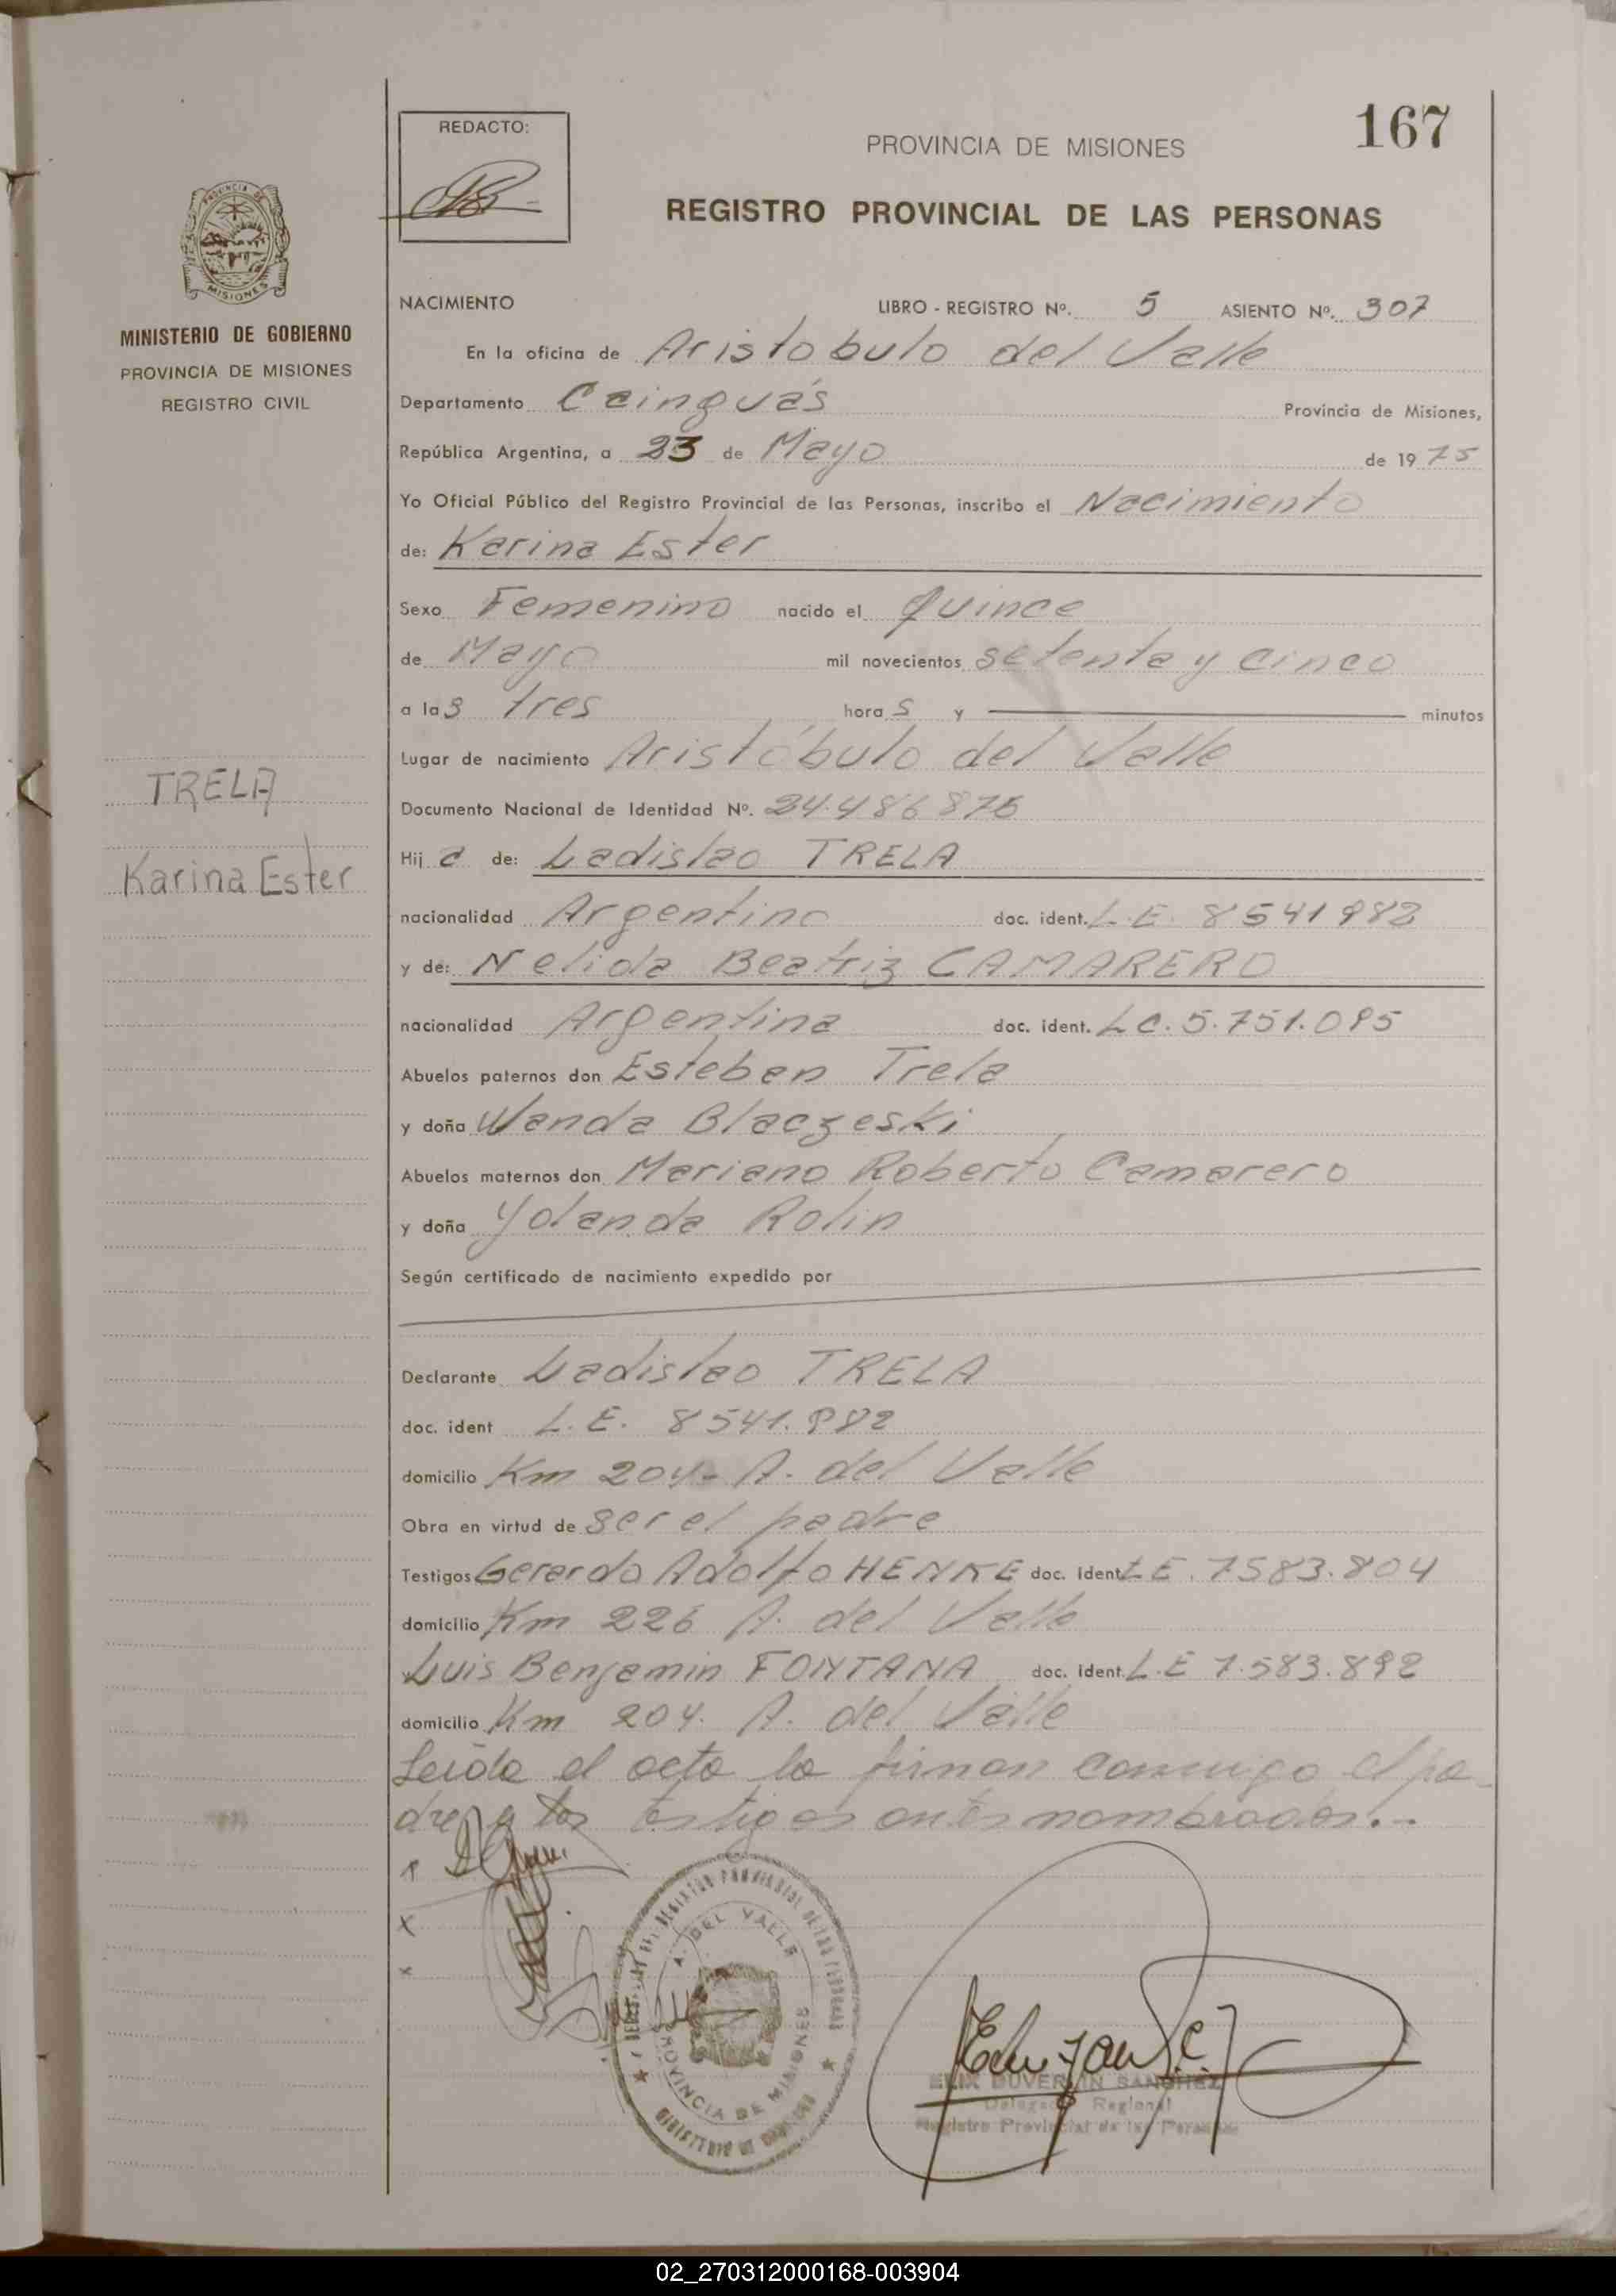 167
REDACTO:
PROVINCIA DE MISIONES
REGISTRO PROVINCIAL DE LAS PERSONAS
MINISTERIO DE GOBIERNO
PROVINCIA DE MISIONES
REGISTRO CIVIL
TRELA
Karina Ester
NACIMIENTO LIBRO - REGISTRO Nº. 5 ASIENTO Nº. 307
En la oficina de Aristobulo del Valle
Departamento Cainguás Provincia de Misiones,
República Argentina, a 23 de Mayo de 1975
Yo Oficial Público del Registro Provincial de las Personas, inscribo el Nacimiento
de: Karina Ester
Sexo Femenino nacido el Quince
de Mayo mil novecientos setenta y cinco
a las tres horas y minutos
Lugar de nacimiento Aristóbulo del Valle
Documento Nacional de Identidad Nº. 24.486875
Hija de: Ladislao TRELA
nacionalidad Argentino doc. ident. L.E. 8541982
y de: Nelida Beatriz CAMARERO
nacionalidad Argentina doc. ident. L.C. 5.751.085
Abuelos paternos don Esteban Trela
y doña Wanda Blaczeski
Abuelos maternos don Mariano Roberto Camarero
y doña Yolanda Rolin
Según certificado de nacimiento expedido por
Declarante Ladislao TRELA
doc. ident L.E. 8541.982
domicilio Km 204- A. del Valle
Obra en virtud de ser el padre
Testigos Gerardo Adolfo HENKE doc. ident L.E. 7583.804
domicilio Km 226 A. del Valle
Luis Benjamin FONTANA doc. ident. L.E 7.583.892
domicilio Km 204. A. del Valle
Leida el acta la firman conmigo el pa-
dre y los testigos antes nombrados.-
A. DEL VALLE
PROVINCIA DE MISIONES
MINISTERIO DE GOBIERNO
Delegado Regional
Registro Provincial de las Personas
02_270312000168-003904